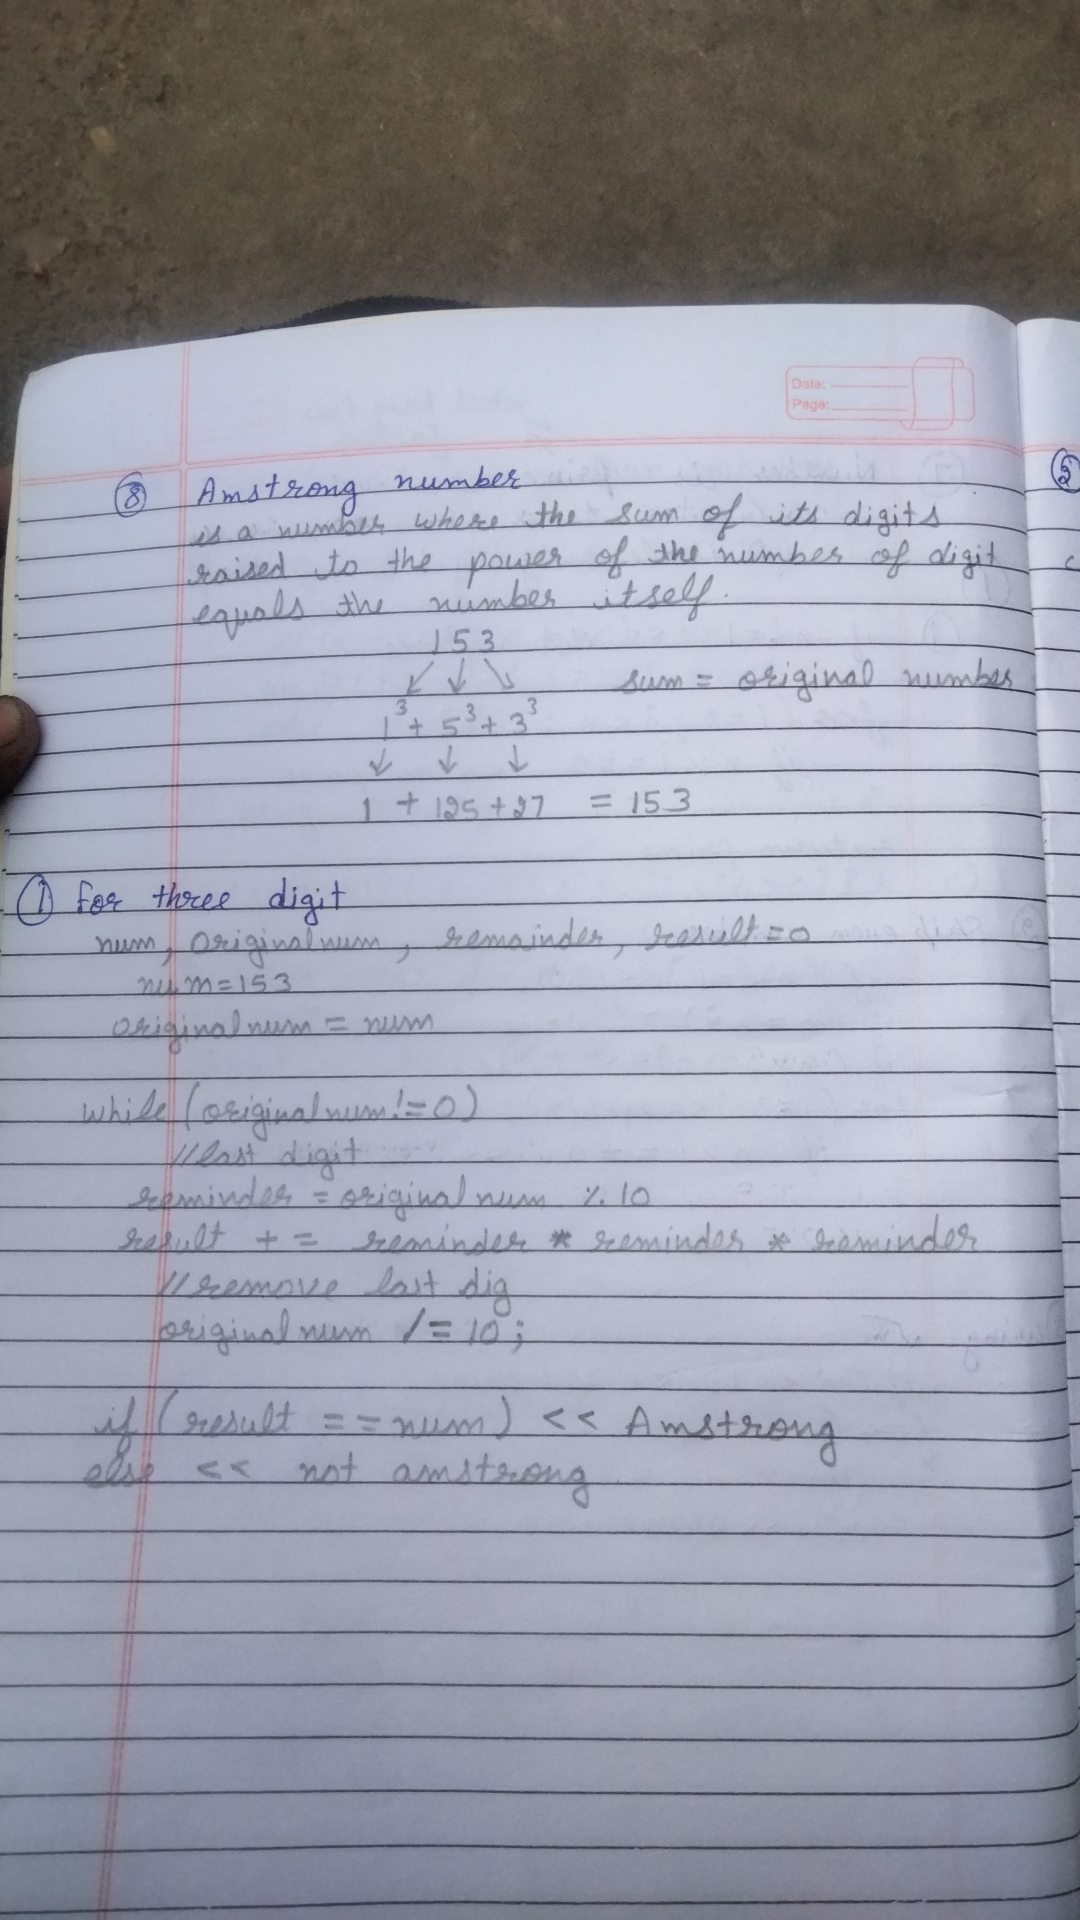 Date:
Page:
8 Amstrong number
is a number where the sum of its digits
raised to the power of the number of digit
equals the number itself.
153
sum = original number
1³ + 5³ + 3³
1 + 125 + 27 = 153
1 For three digit
num, originalnum, remainder, result=0
num=153
originalnum = num
while (originalnum!=0)
//last digit
reminder = originalnum % 10
result += reminder * reminder * reminder
//remove last dig
originalnum /= 10;
if (result == num) << Amstrong
else << not amstrong
5
c